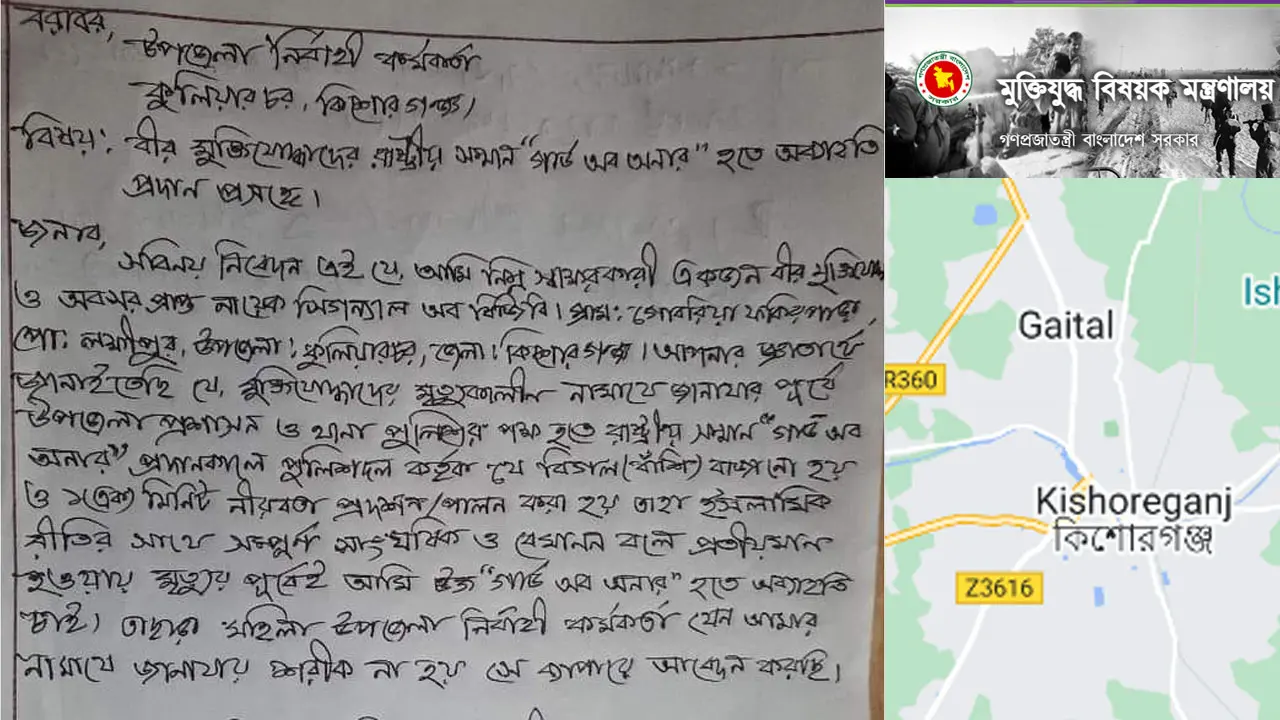 বরাবর,
উপজেলা নির্বাহী কর্মকর্তা
কুলিয়ারচর, কিশোরগঞ্জ।
বিষয়: বীর মুক্তিযোদ্ধাদের রাষ্ট্রীয় সম্মান "গার্ড অব অনার" হতে অব্যাহতি
প্রদান প্রসঙ্গে।
জনাব,
সবিনয় নিবেদন এই যে, আমি নিম্ন স্বাক্ষরকারী একজন বীর মুক্তিযোদ্ধা
ও অবসর প্রাপ্ত নায়েক সিগন্যাল অব বিডিবি। গ্রাম: গোবরিয়া ফকিরপাড়া,
পো: লক্ষীপুর, উপজেলা: কুলিয়ারচর, জেলা: কিশোরগঞ্জ। আপনার জ্ঞাতার্থে
জানাইতেছি যে, মুক্তিযোদ্ধাদের মৃত্যুকালীন নামাযে জানাযার পূর্বে
উপজেলা প্রশাসন ও থানা পুলিশের পক্ষ হতে রাষ্ট্রীয় সম্মান "গার্ড অব
অনার" প্রদানকালে পুলিশদল কর্তৃক যে বিগাল (বাঁশি) বাজানো হয়
ও ১(এক) মিনিট নীরবতা প্রদর্শন/পালন করা হয় তাহা ইসলামিক
রীতির সাথে সম্পূর্ণ সাংঘর্ষিক ও বেমানান বলে প্রতীয়মান
হওয়ায় মৃত্যুর পূর্বেই আমি উক্ত "গার্ড অব অনার" হতে অব্যাহতি
চাই। তাছাড়া মহিলা উপজেলা নির্বাহী কর্মকর্তা যেন আমার
নামাযে জানাযায় শরীক না হয় সে ব্যাপারে আবেদন করছি।
মুক্তিযুদ্ধ বিষয়ক মন্ত্রণালয়
গণপ্রজাতন্ত্রী বাংলাদেশ সরকার
Ish
Gaital
R360
Kishoreganj
কিশোরগঞ্জ
Z3616